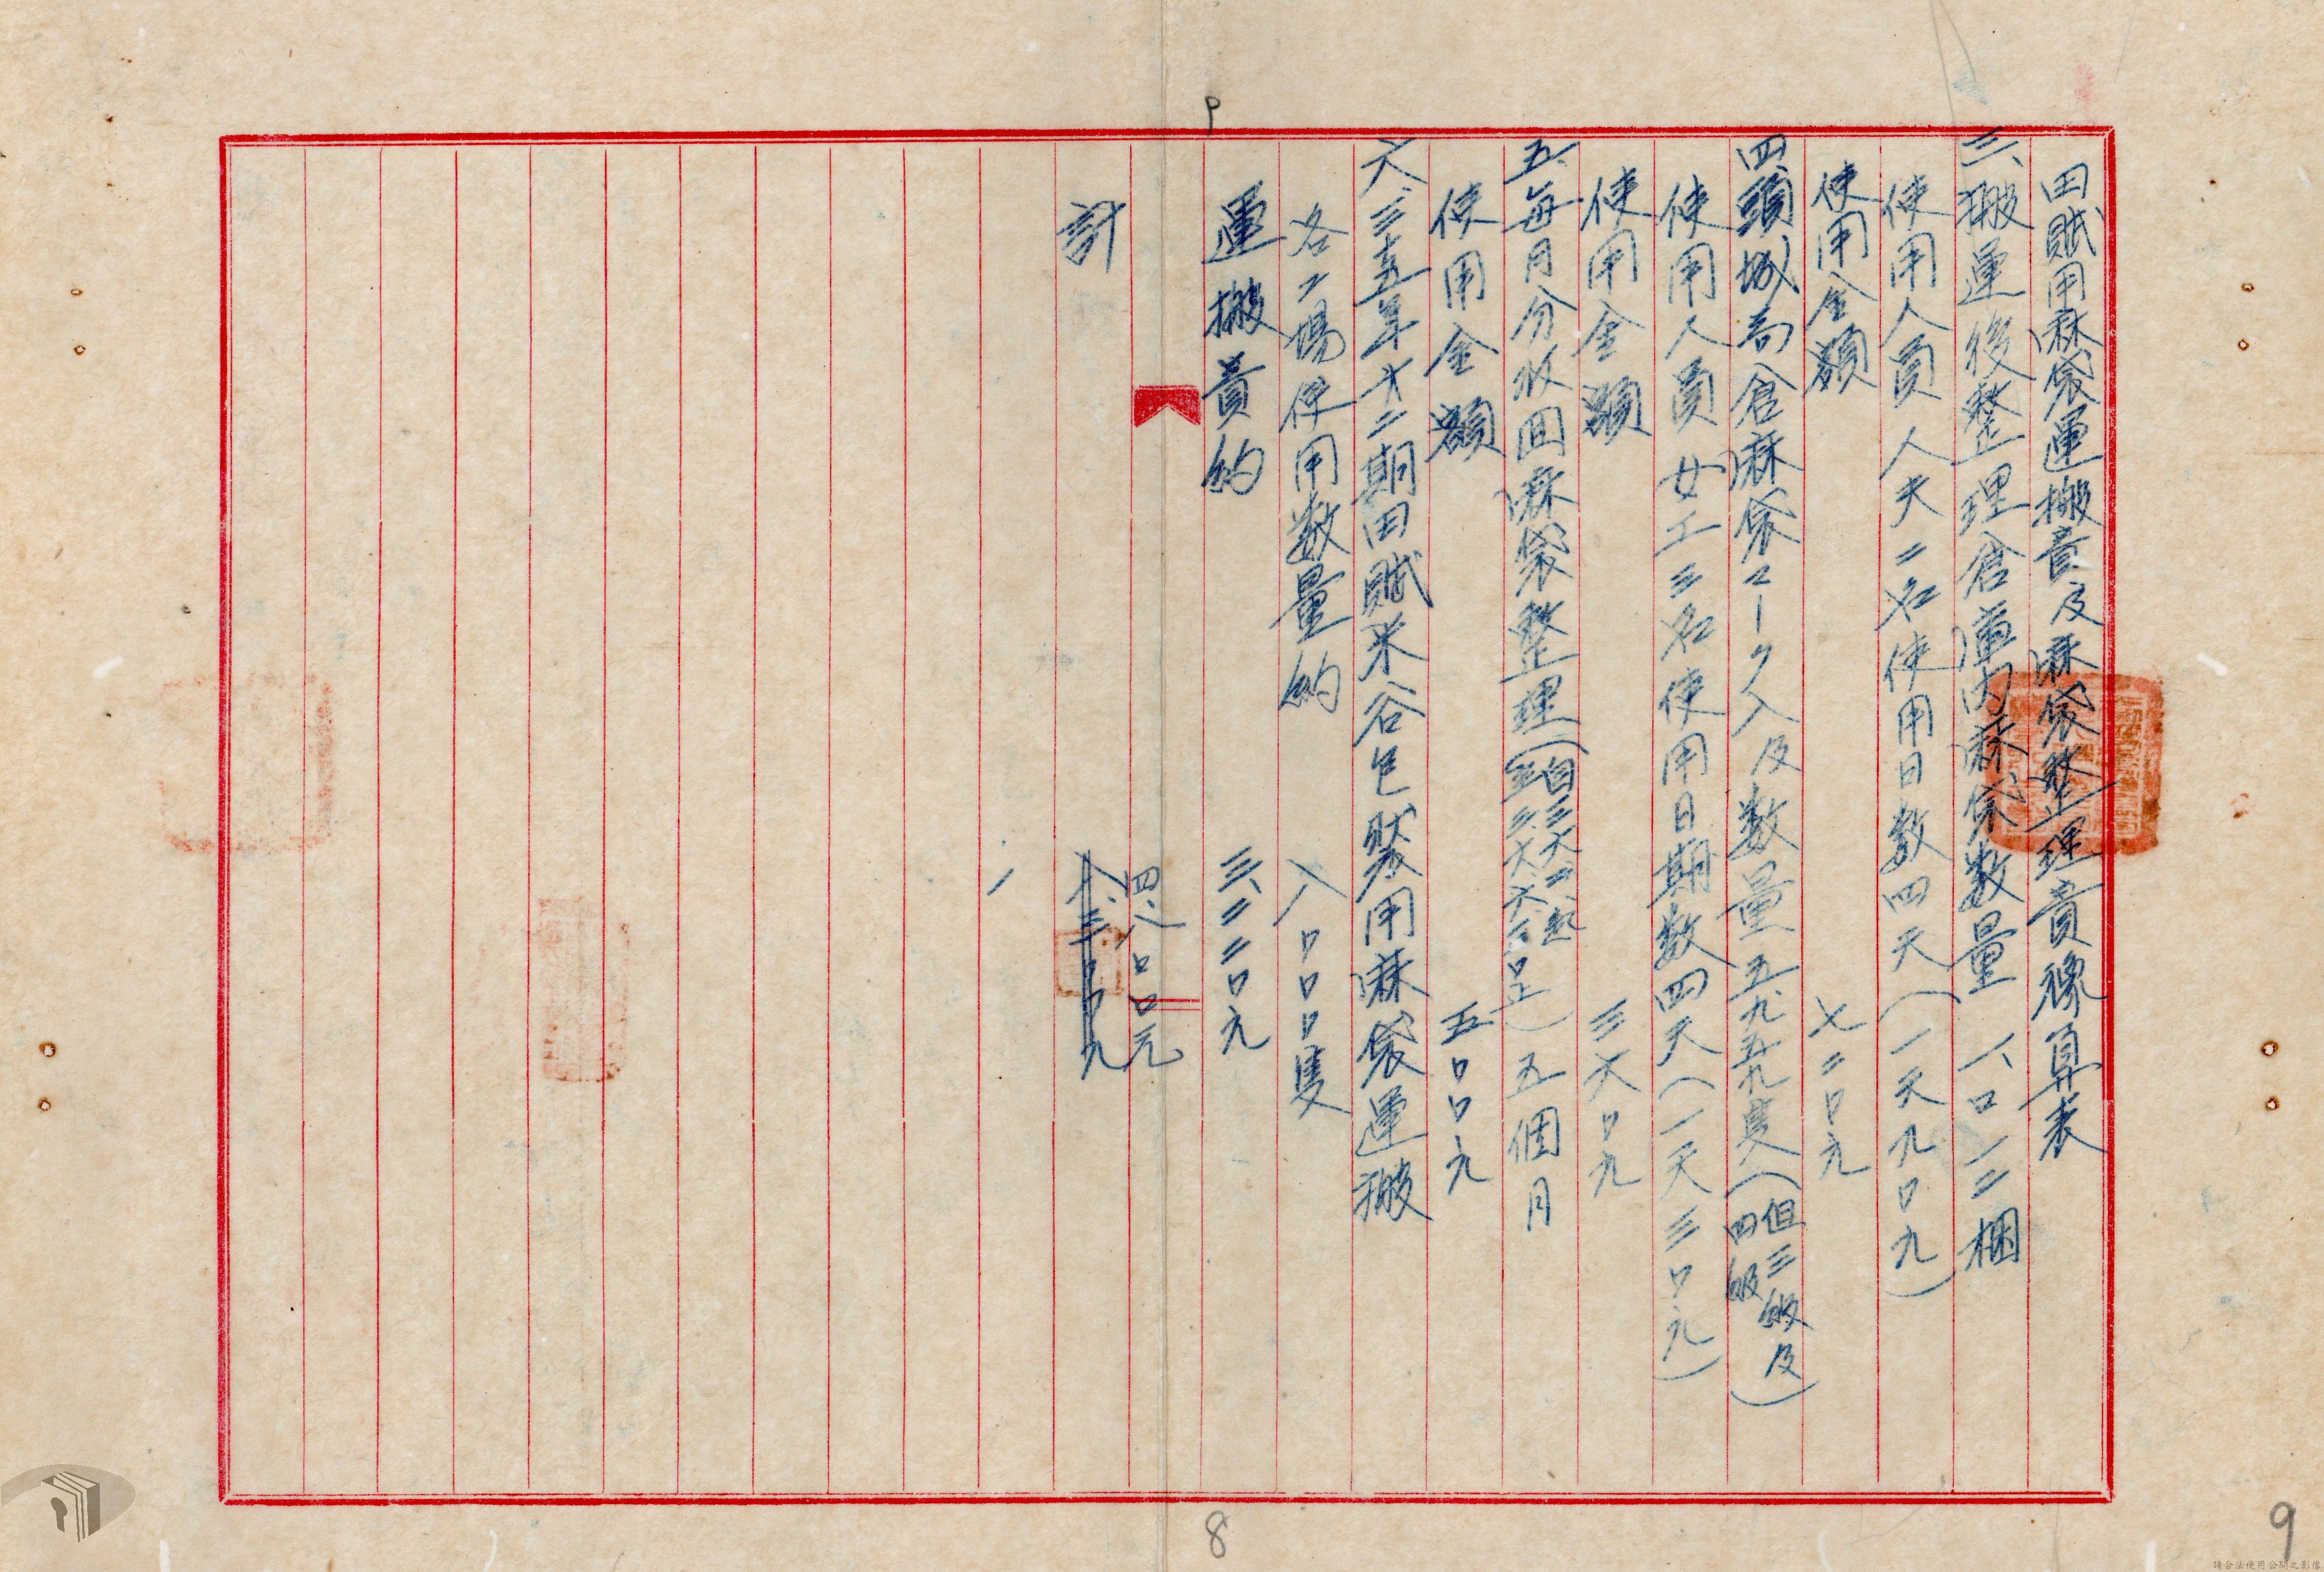 田賦用麻袋運搬費及麻袋整理費豫算表
三、搬運後整理倉庫内麻袋数量 一、〇一二梱
使用人員 人夫二名使用日数四天(一天九〇元)
使用金額 七二〇元
四、頭城局倉麻袋マーク入及数量五九五九隻(但三級及四級)
使用人員 女工三名使用日期数四天(一天三〇元)
使用金額 三六〇元
五、每月分收回麻袋整理( )五個月
使用金額 五〇〇元
六、三十五年十二期田賦米谷包裝用麻袋運搬
各工場使用数量約 八〇〇〇隻
運搬費約 三、二二〇元
四、八〇〇元
計
8
9
請合法使用公開之影像